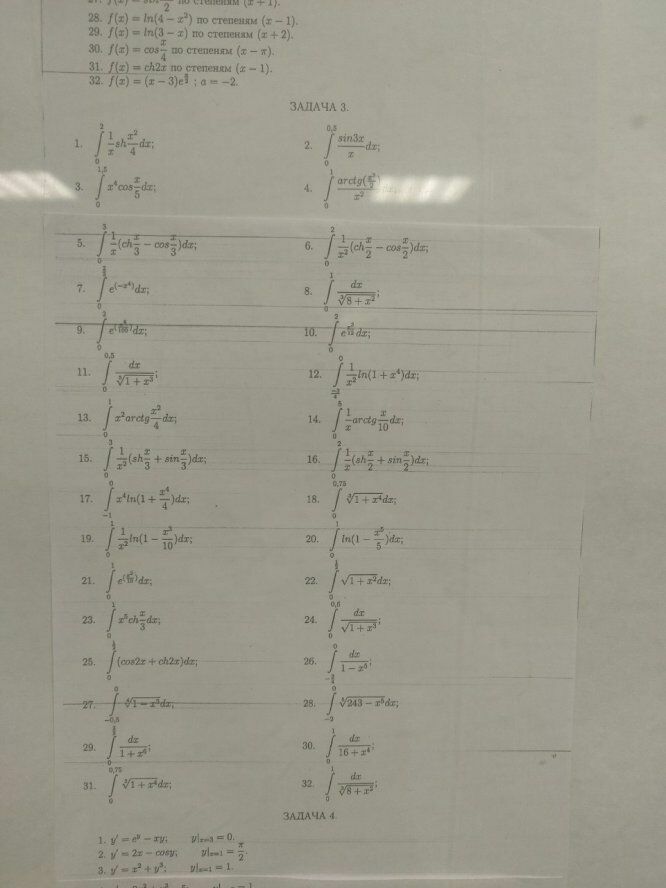 28. f(x) = ln(4 − x²) по степеням (x − 1).
29. f(x) = ln(3 − x) по степеням (x + 2).
30. f(x) = cos x/4 по степеням (x − π).
31. f(x) = ch2x по степеням (x − 1).
32. f(x) = (x − 3)e^(x/2) ; a = −2.
ЗАДАЧА 3.
1. ∫₀² 1/x sh x²/4 dx; 2. ∫₀^0,5 sin3x/x dx;
3. ∫₀^1,5 x⁴cos x/5 dx; 4. ∫₀¹ arctg(x²/2)/x²
5. ∫₀³ 1/x (ch x/3 − cos x/3)dx; 6. ∫₀² 1/x² (ch x/2 − cos x/2)dx;
7. ∫₀ e^(−x⁴)dx; 8. ∫₀¹ dx/∛(8 + x²);
9. ∫₀² dx; 10. ∫₀² dx;
11. ∫₀^0,5 dx/√(1 + x³); 12. ∫⁰ 1/x² ln(1 + x⁴)dx;
13. ∫₀¹ x²arctg x²/4 dx; 14. ∫₀⁵ 1/x arctg x/10 dx;
15. ∫₀³ 1/x² (sh x/3 + sin x/3)dx; 16. ∫₀² 1/x (sh x/2 + sin x/2)dx;
17. ∫₋₁⁰ x⁴ln(1 + x⁴/4)dx; 18. ∫₀^0,75 ∛(1 + x⁴)dx;
19. ∫₀¹ 1/x² ln(1 − x³/10)dx; 20. ∫₀¹ ln(1 − x⁵/5)dx;
21. ∫₀¹ dx; 22. ∫₀ √(1 + x²)dx;
23. ∫₀¹ x⁵ch x/3 dx; 24. ∫₀^0,6 dx/√(1 + x³);
25. ∫₀ (cos2x + ch2x)dx; 26. ∫⁰ dx/(1 − x⁵);
27. ∫₋₀,₅⁰ √(1 − x³)dx; 28. ∫₋₂⁰ √(243 − x⁵)dx;
29. ∫₀ dx/(1 + x⁶); 30. ∫₀¹ dx/(16 + x⁴);
31. ∫₀^0,75 √(1 + x⁴)dx; 32. ∫₀¹ dx/∛(8 + x²);
ЗАДАЧА 4.
1. y′ = e^y − xy; y|ₓ₌₃ = 0.
2. y′ = 2x − cosy; y|ₓ₌₁ = π/2.
3. y′ = x² + y³; y|ₓ₌₁ = 1.